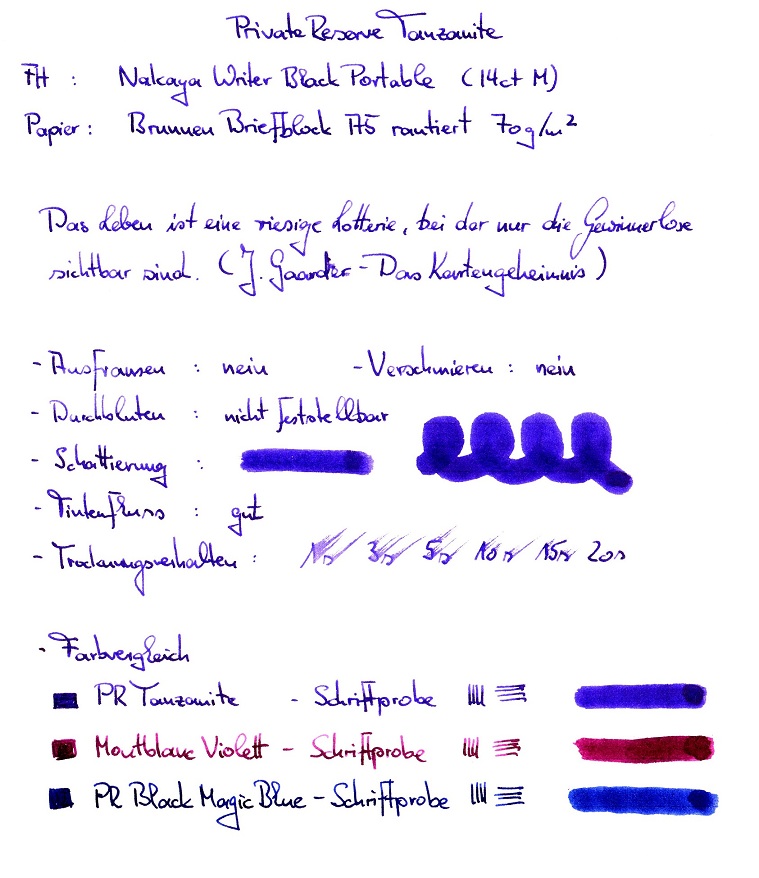 Private Reserve Tanzanite
FH : Nakaya Writer Black Portable (14ct M)
Papier : Brunnen Briefblock A5 rautiert 70g/m²
Das Leben ist eine riesige Lotterie, bei der nur die Gewinnerlose
sichtbar sind. (J. Gaarder - Das Kartengeheimnis)
- Ausfransen : nein - Verschmieren : nein
- Durchbluten : nicht feststellbar
- Schattierung :
- Tintenfluss : gut
- Trocknungsverhalten : 1s 3s 5s 10s 15s 20s
- Farbvergleich
PR Tanzanite - Schriftprobe
Montblanc Violett - Schriftprobe
PR Black Magic Blue - Schriftprobe